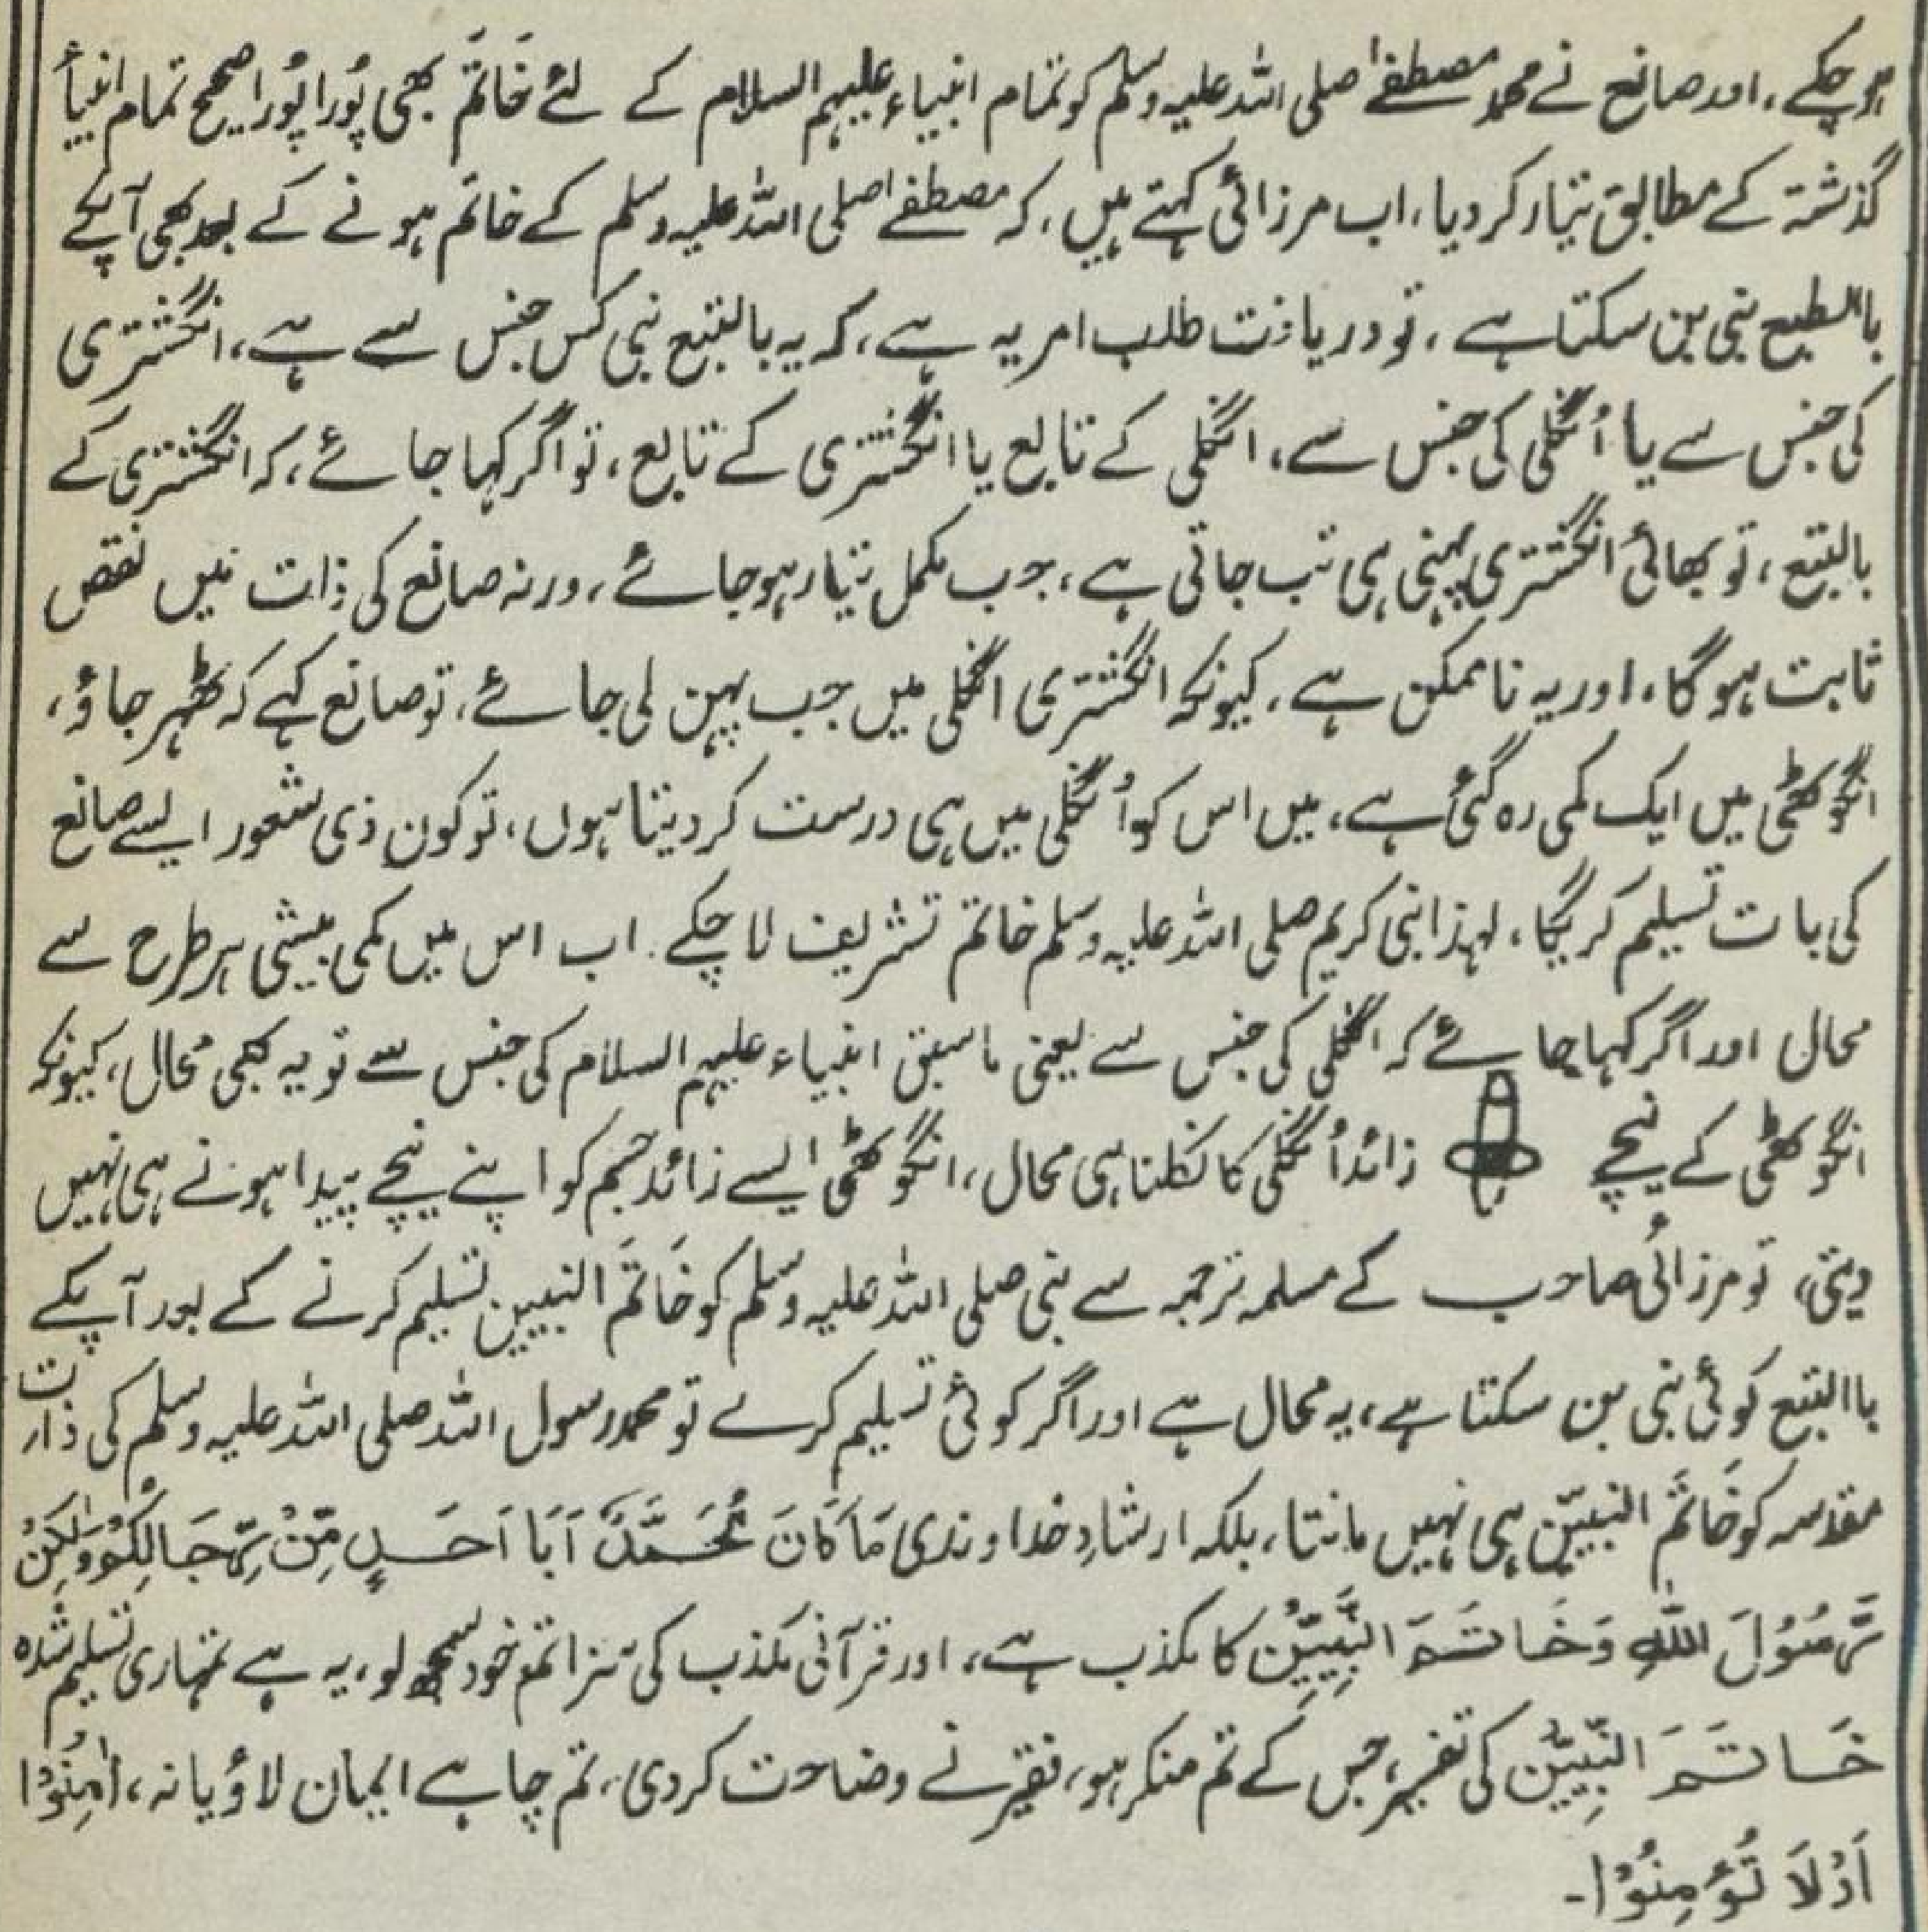 ہو چکے، اور صانع نے محمد مصطفےٰ صلی اللہ علیہ وسلم کو تمام انبیاء علیہم السلام کے لئے خَاتَمَ بھی پُورا پُورا صحیح تمام انبیأ
گذشتہ کے مطابق تیار کر دیا، اب مرزائی کہتے ہیں، کہ مصطفےٰ صلی اللہ علیہ وسلم کے خاتم ہونے کے بعد بھی آپکے
باالطبع نبی بن سکتا ہے، تو دریافت طلب امر یہ ہے، کہ یہ بالتبع نبی کس جنس سے ہے، انگشتری
کی جنس سے یا اُنگلی کی جنس سے، انگلی کے تابع یا انگشتری کے تابع، تو اگر کہا جائے، کہ انگشتری کے
بالتبع، تو بھائی انگشتری پہنی ہی تب جاتی ہے، جب مکمل تیار ہو جائے، ورنہ صانع کی ذات میں نقص
ثابت ہوگا، اور یہ ناممکن ہے، کیونکہ انگشتری انگلی میں جب پہن لی جائے، تو صانع کہے کہ ٹھہر جاؤ،
انگوٹھی میں ایک کمی رہ گئی ہے، میں اس کو اُنگلی میں ہی درست کر دیتا ہوں، تو کون ذی شعور ایسے صانع
کی بات تسلیم کریگا، لہذا نبی کریم صلی اللہ علیہ وسلم خاتم تشریف لا چکے۔ اب اس میں کمی بیشی ہر طرح سے
محال اور اگر کہا جائے کہ انگلی کی جنس سے یعنی ماسبق انبیاء علیہم السلام کی جنس سے تو یہ بھی محال، کیونکہ
انگوٹھی کے نیچے زائد اُنگلی کا نکلنا ہی محال، انگوٹھی ایسے زائد جسم کو اپنے نیچے پیدا ہونے ہی نہیں
دیتی، تو مرزائی صاحب کے مسلمہ ترجمہ سے نبی صلی اللہ علیہ وسلم کو خَاتَمَ النبیین تسلیم کرنے کے بعد آپکے
باالتبع کوئی نبی بن سکتا ہے، یہ محال ہے اور اگر کوئی تسلیم کرے تو محمد رسول اللہ صلی اللہ علیہ وسلم کی ذات
مقدسہ کو خَاتَمَ النبیّن ہی نہیں مانتا، بلکہ ارشادِ خداوندی مَا کَانَ مُحَمَّدٌ اَبَا اَحَدٍ مِّنْ رِّجَالِکُمْ وَلٰکِنْ
رَّسُوْلَ اللّٰہِ وَخَاتَمَ النَّبِیّٖنَ کا مکذب ہے، اور قرآنی مکذب کی سزا تم خود سمجھ لو، یہ ہے تمہاری تسلیم شدہ
خَاتَمَ النَّبِیّٖنَ کی تفسیر، جس کے تم منکر ہو، فقیر نے وضاحت کر دی، تم چاہے ایمان لاؤ یا نہ، اٰمِنُوْا
اَوْلَا تُؤْمِنُوْا۔